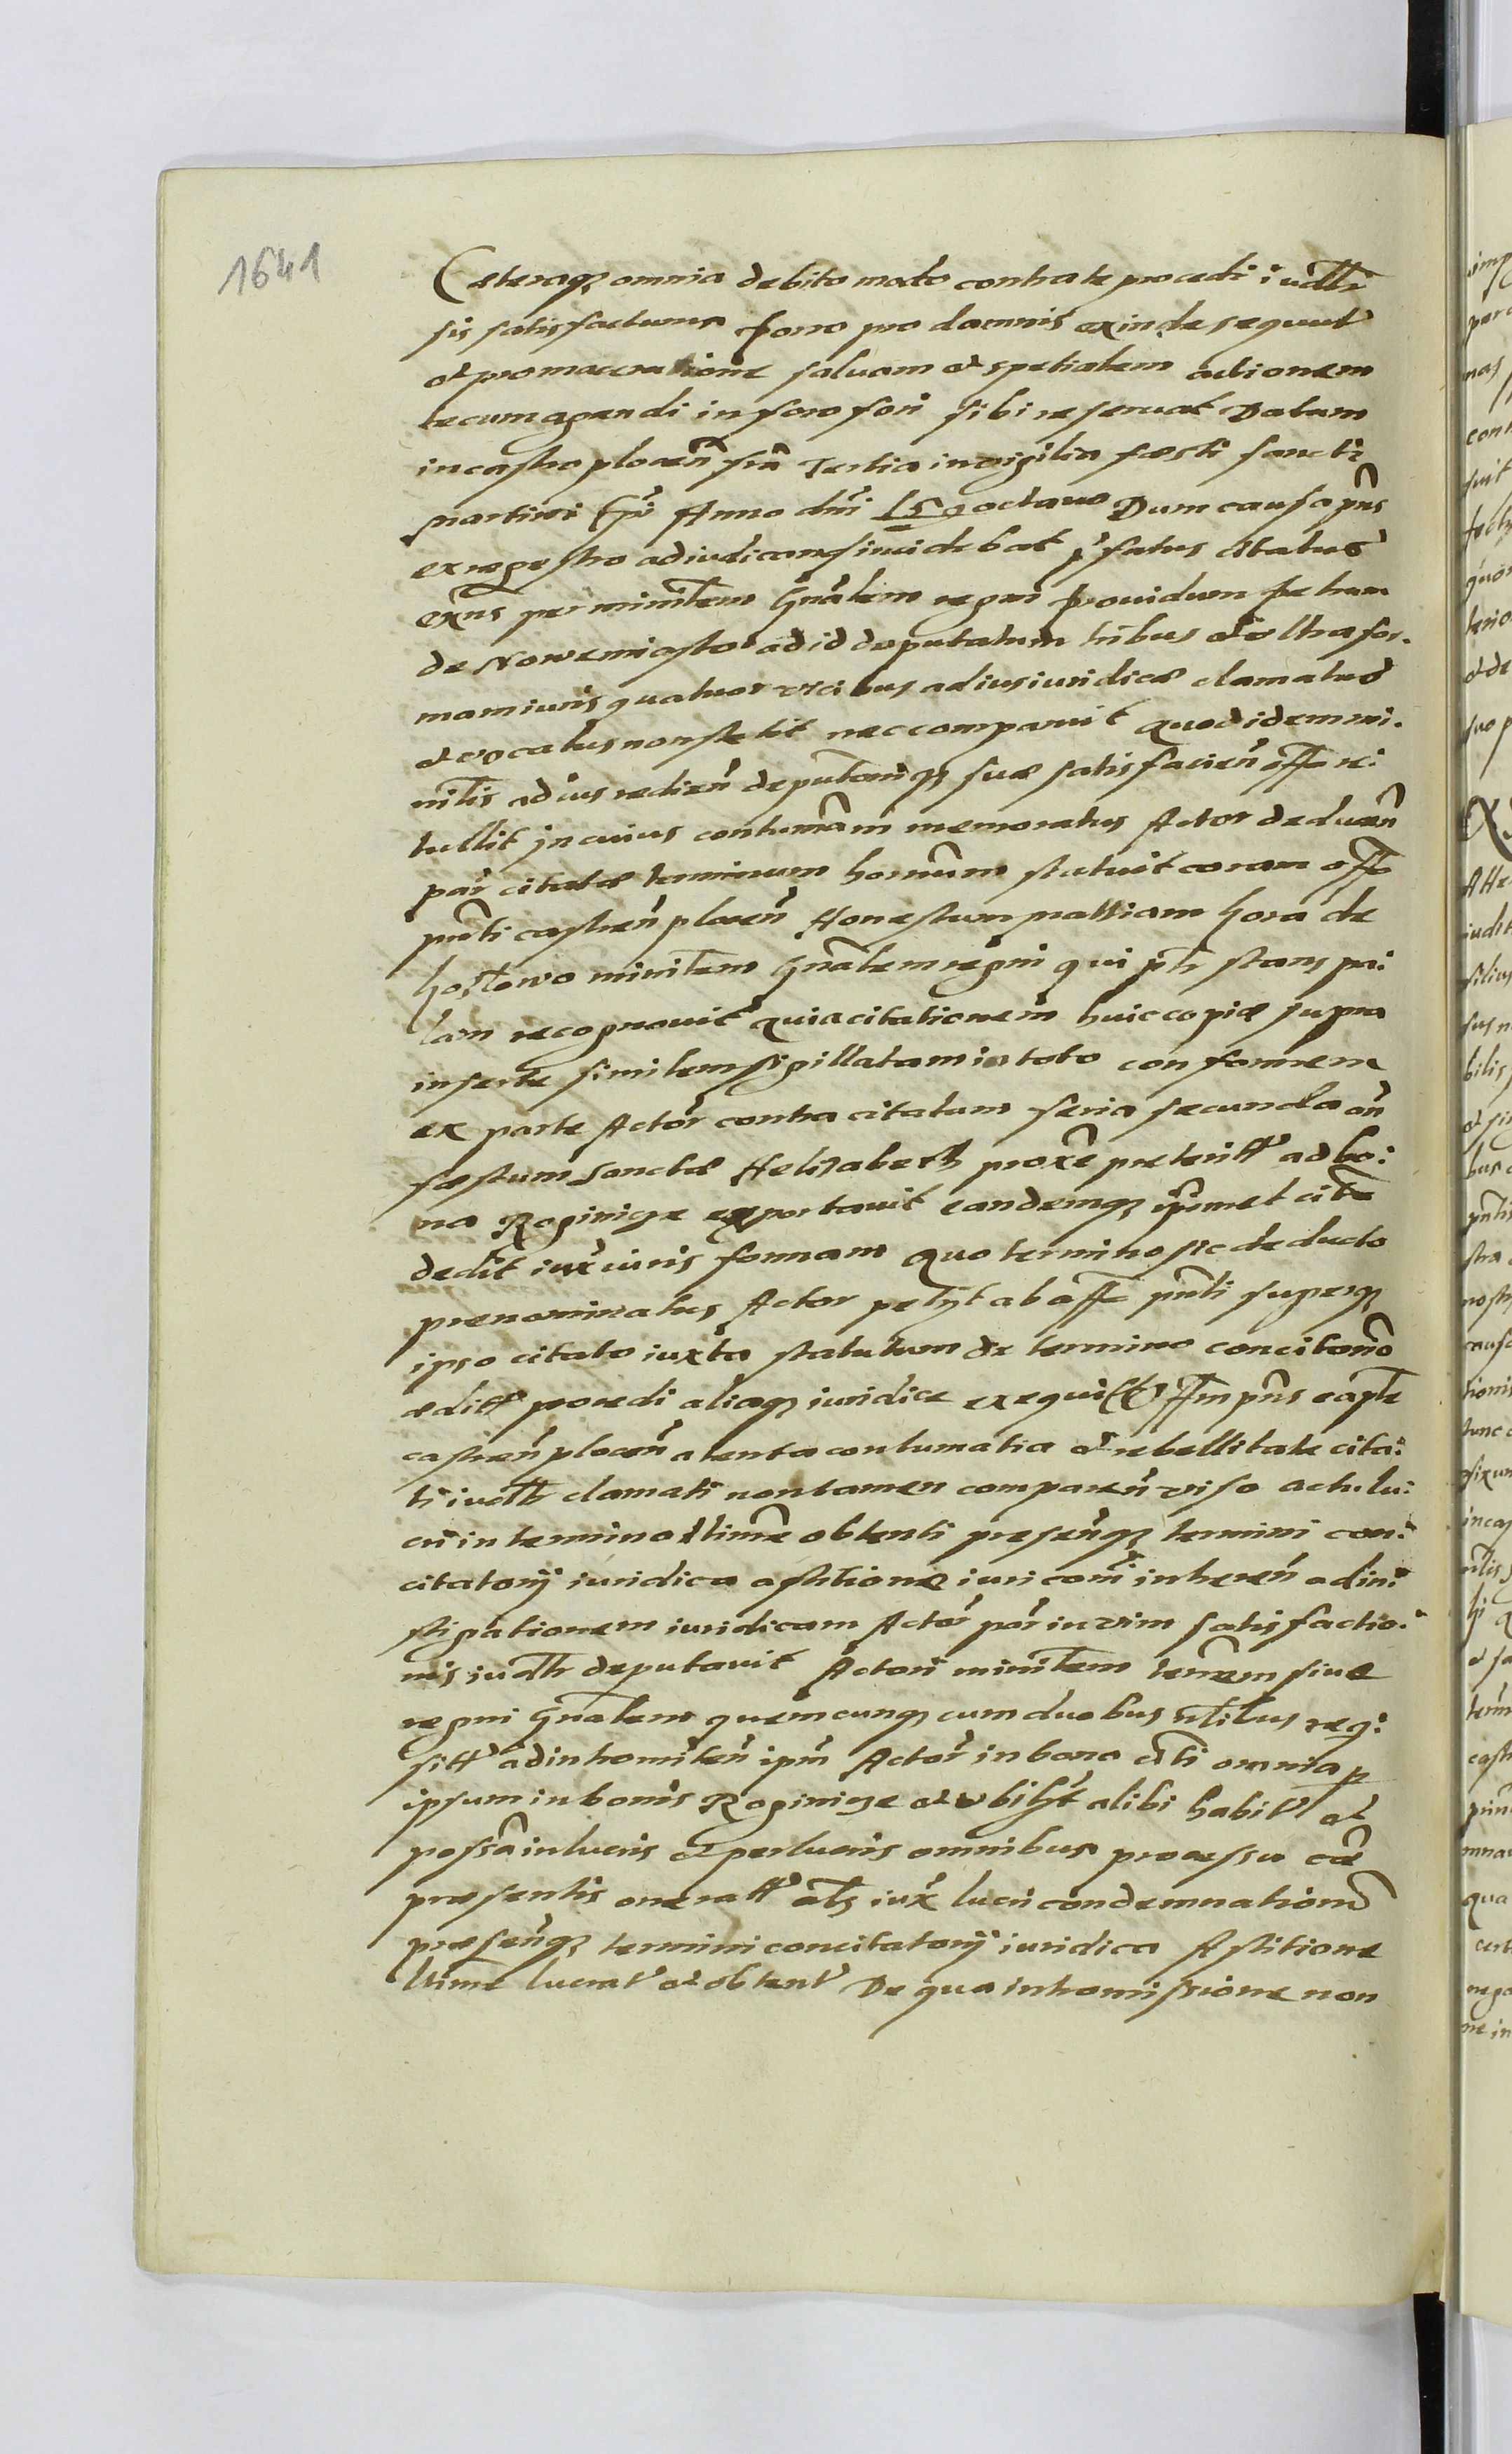 1641
Cæteraq omnia debito modo contra te procedi iudltr
sis satisfacturus Porro pro damnis exinde sequut
et pro maceratione saluam et spetialem actionem
tecum agendi in foro fori sibi reseruat Datum
in castro plocen fria Tertia in vigilia fæsti sancti
martini Epi Anno dni 159 octauo Dum causa pns
ex regestro adiudicandum incidebat pfatus citatus
exns per minrlem Gnalem regni Prouidum Petrum
de Nowemiasto ad id deputatum tribus et vltra for.
mam iuris quatuor vicibus ad ius iuridicæ clamatus
et vocatus non stetit nec comparuit Quod idem mi.
nrlis ad ius rediens deputoniq suæ satisfacien offo re:
tullit In cuius contumam memoratus Actor deducen
par citatæ terminum hornum statuit coram offo
pnti castren plocen Honestum mathiam Gora de
Goslewo minrlem Gnalem regni qui ibi stans pa:
lam recognouit Quia citationem huic copiæ supra
insertæ similem sigillatam in toto conformem
ex parte Actor contra citatum feria secunda an
fæstum sanctæ Helizabeth proxe preterit ad bo:
na Roginicze apportauit eandemq ipimet cito
dedit iux iuris formam Quo termino sic deducto
prenominatus Actor petyt ab offo pnti superq
ipso citato iuxta statutum de termino concitonio
ædit procedi aliaq iuridice exequi Offm pns capte
castren plocen atenta contumatia et rebellitate cita:
ti iudltr clamati non tamen comparen viso actu lu:
cri in termino ltime obtenti presenq termini con:
citatorij iuridica astitione iuri comi inheren ad in:
stigationem iuridicam Actor par in vim satisfactio:
nis iudltr deputauit Actori minrlem trrem siue
regni Gnalem quemcunq cum duobus nlibus reqi:
sit ad intromitten ipm Actor in bona cti omnia p
ipsum in bonis Roginicze et vbilzt alibi habit et
possa in lucris et per lucris omnibus processu cæ
præsentis onerat als iux lucri condemnationu
præsenq termini concitatorij iuridica Astitione
ltime lucrat et obtent De qua intromissione non